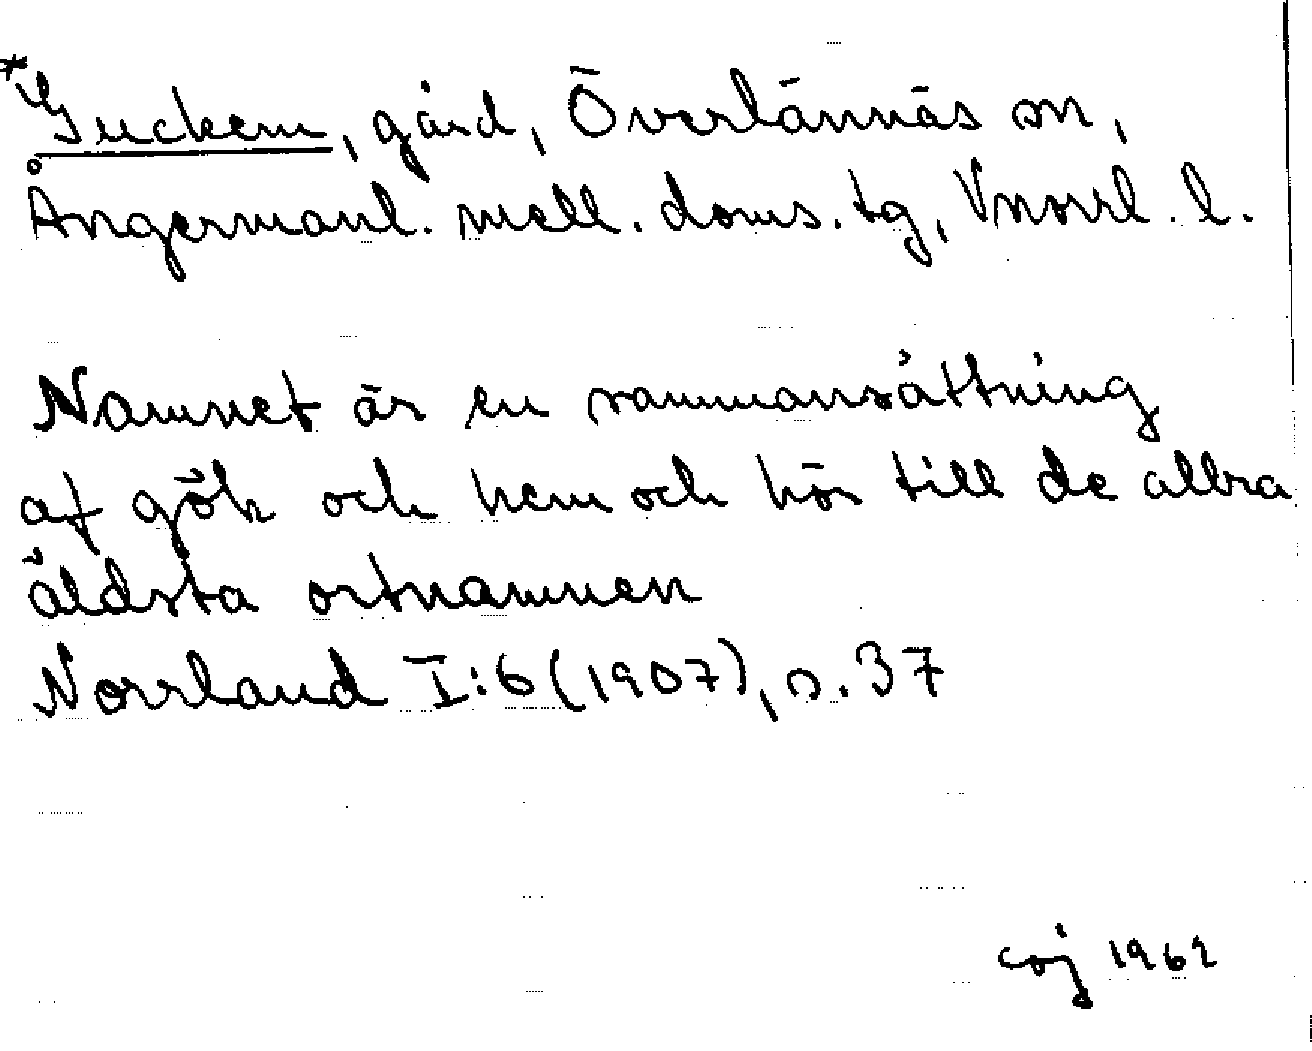 *Guckem, gård, Överlännäs sn,
Ångermanl. mell. doms. tg, Vnorrl. l.
Namnet är en sammansättning
af gök och hem och hör till de allra
äldsta ortnamnen
Norrland I:6 (1907), s. 37
coj 1962